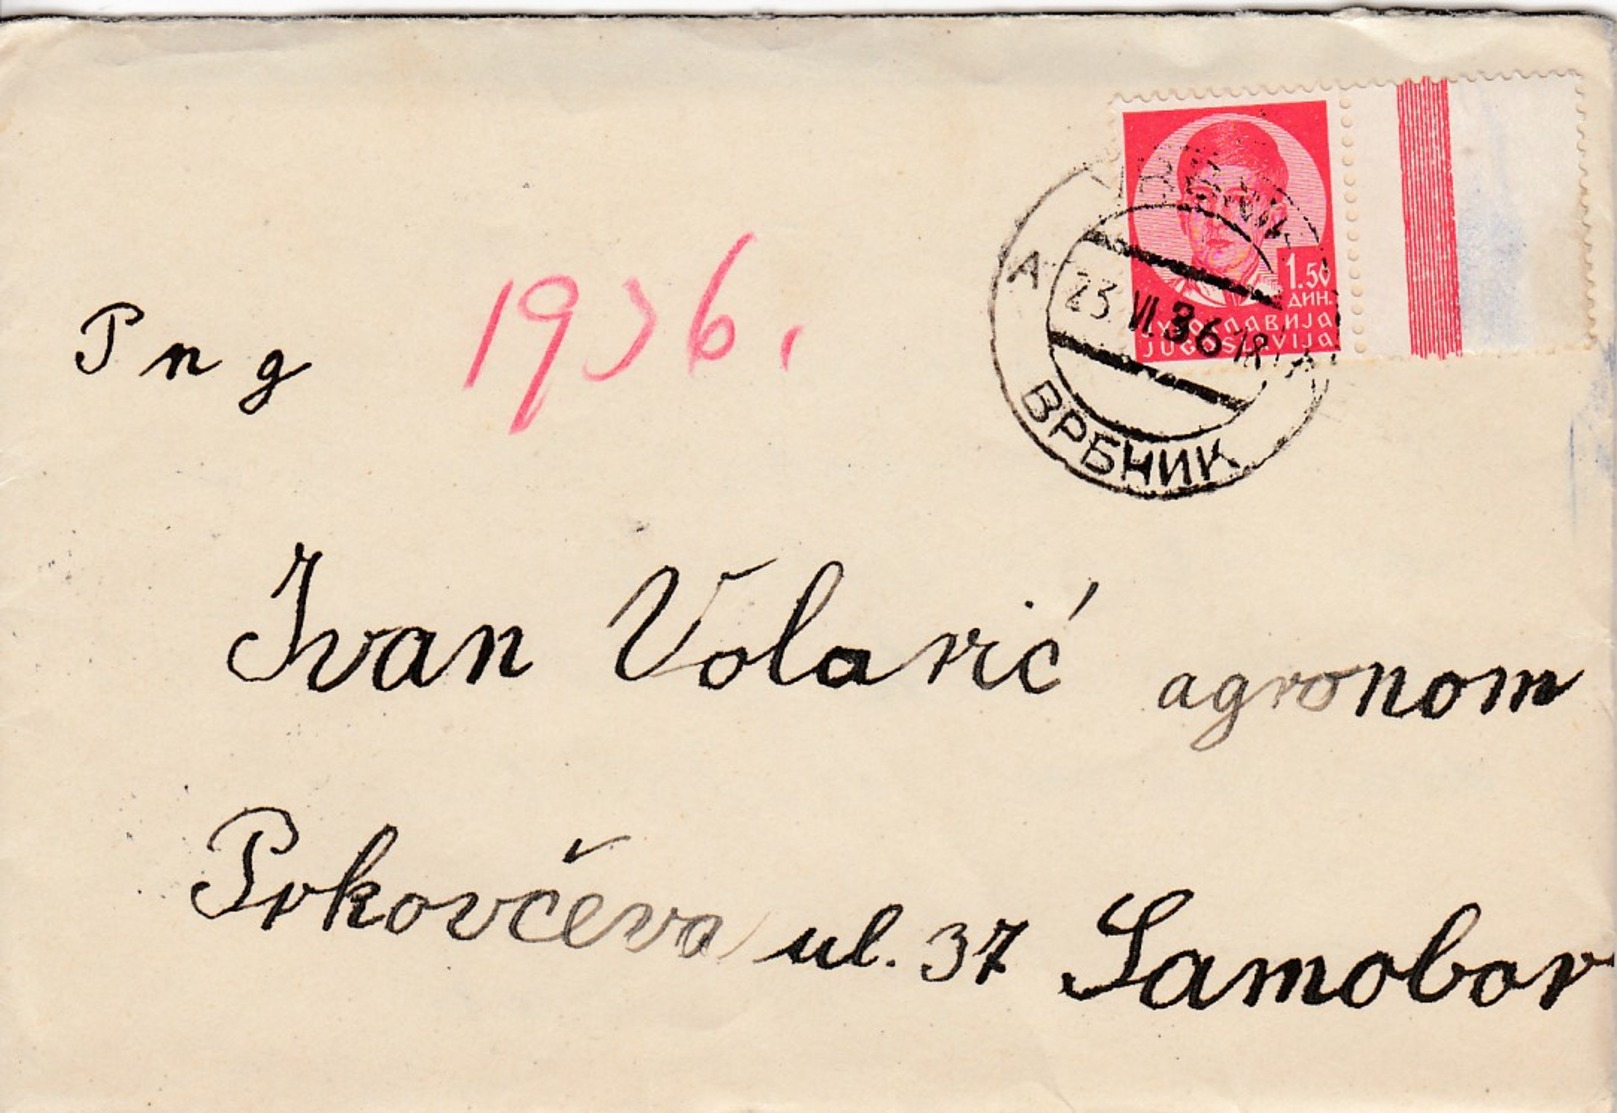 1.50
ДИН.
ЈУГОСЛАВИЈА
JUGOSLAVIJA
A 23.VI.36 18
ВРБНИК
P n g
1936.
Ivan Volarić agronom
Prkovčeva ul. 37 Samobor